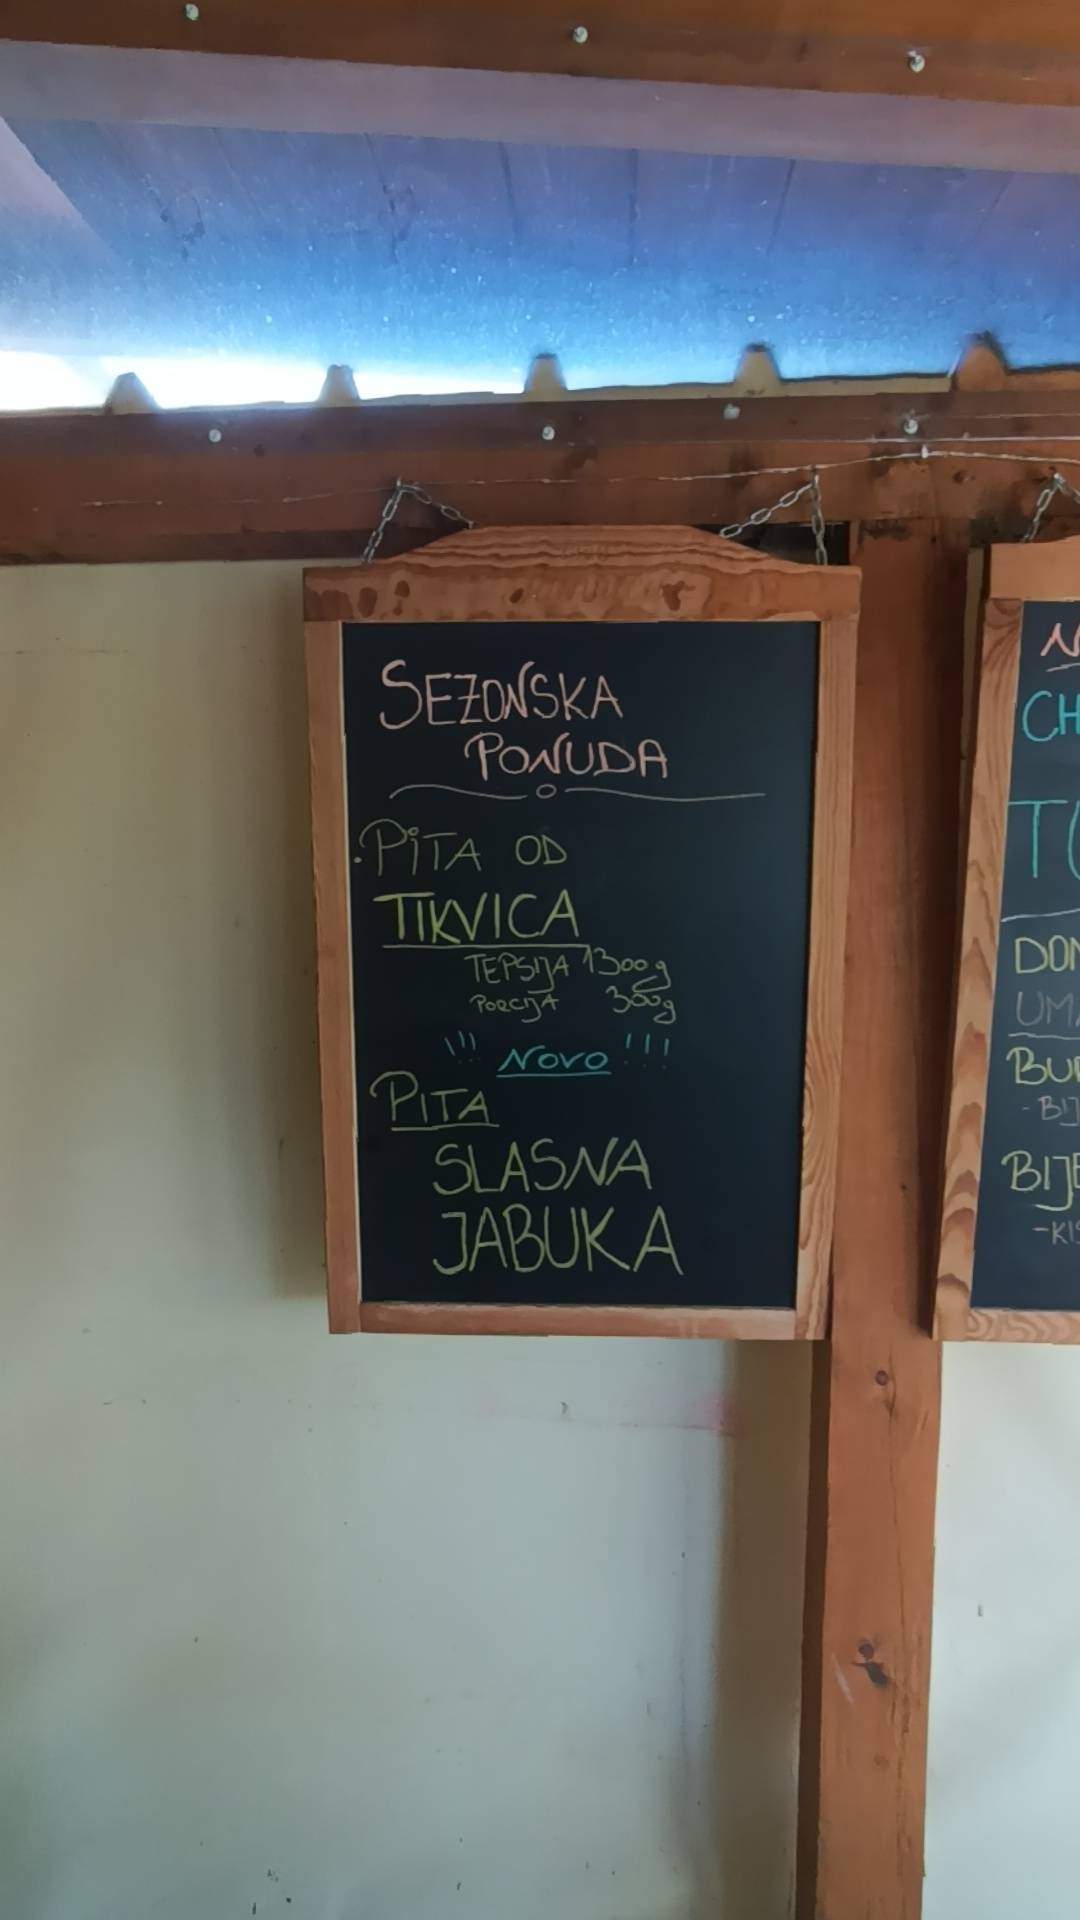 SEZONSKA
PONUDA
PITA OD
TIKVICA
TEPSIJA 1300g
PORCIJA 300g
!!! NOVO !!!
PITA
SLASNA
JABUKA
CH
DOM
UMA
BIJE